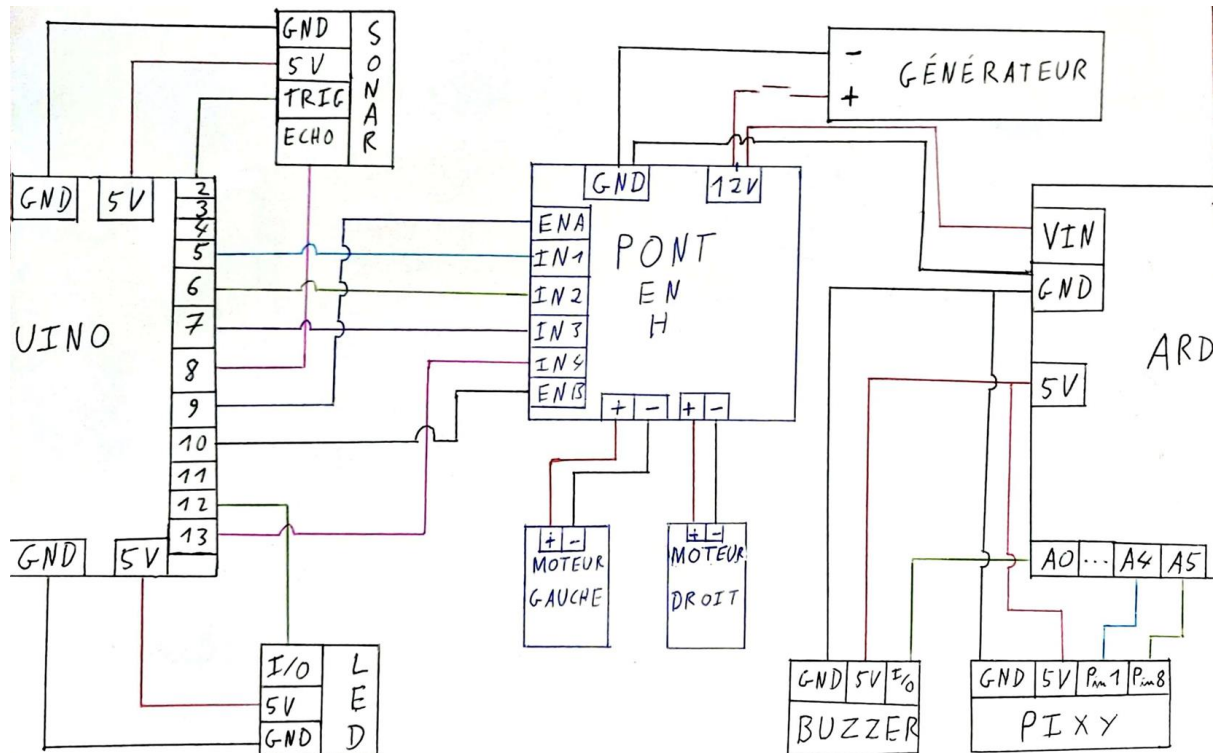 GND
5V
TRIG
ECHO
SONAR
GÉNÉRATEUR
-
+
GND
5V
2
3
4
5
6
7
8
9
10
11
12
13
UINO
GND
5V
GND
12V
ENA
IN1
IN2
IN3
IN4
ENB
PONT
EN
H
+ - + -
+ -
MOTEUR
GAUCHE
+ -
MOTEUR
DROIT
VIN
GND
5V
ARD
A0 ... A4 A5
I/O
5V
GND
LED
GND 5V I/O
BUZZER
GND 5V Pin1 Pin8
PIXY